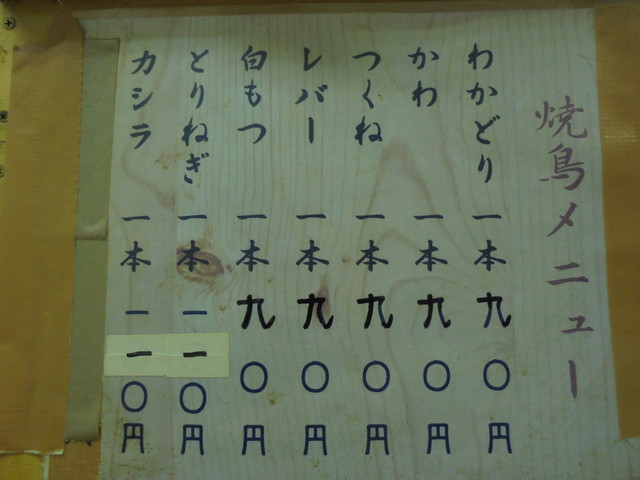 焼鳥メニュー
わかどり一本九〇円
かわ一本九〇円
つくね一本九〇円
レバー一本九〇円
白もつ一本九〇円
とりねぎ一本一一〇円
カシラ一本一一〇円